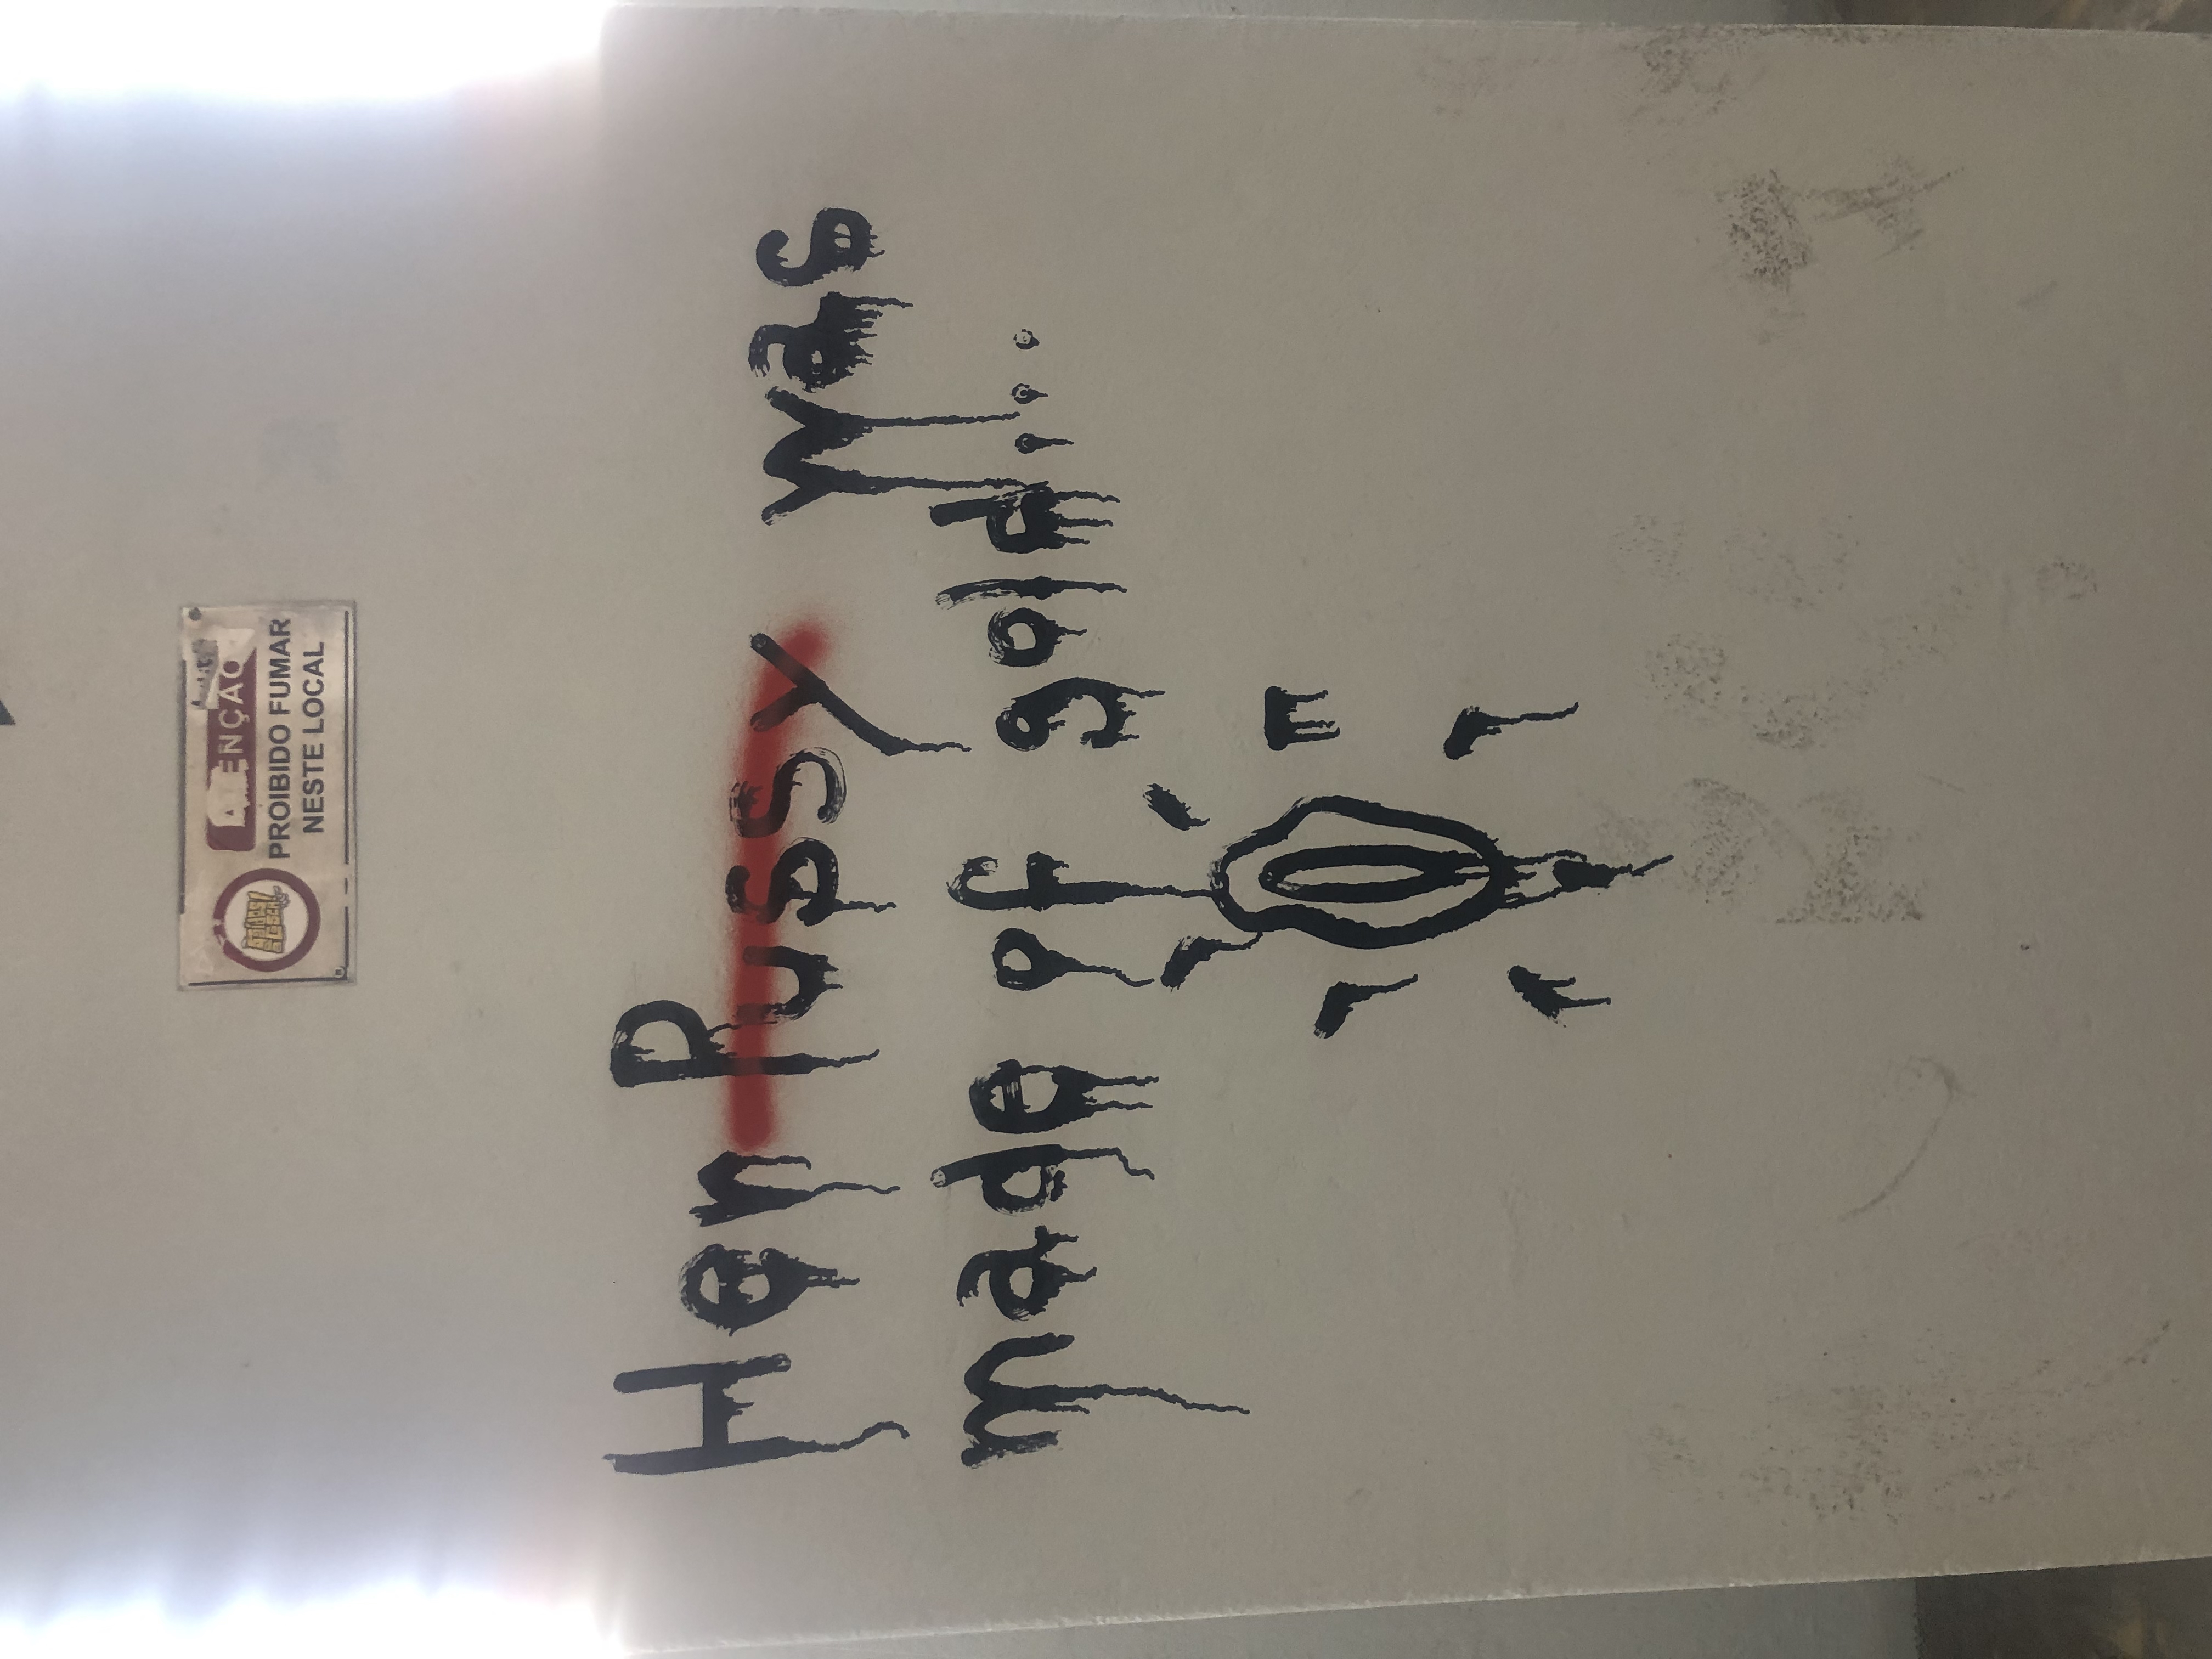 ATENÇÃO
PROIBIDO FUMAR
NESTE LOCAL
Her Pussy was
made of gold...